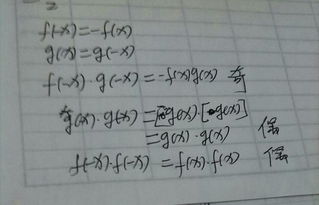 f(-x)=-f(x)
g(x)=g(-x)
f(-x)·g(-x)=-f(x)g(x) 奇
g(x)·g(x)=[g(x)]·[g(x)]
=g(x)·g(x) 偶
f(-x)·f(-x)=f(x)·f(x) 偶